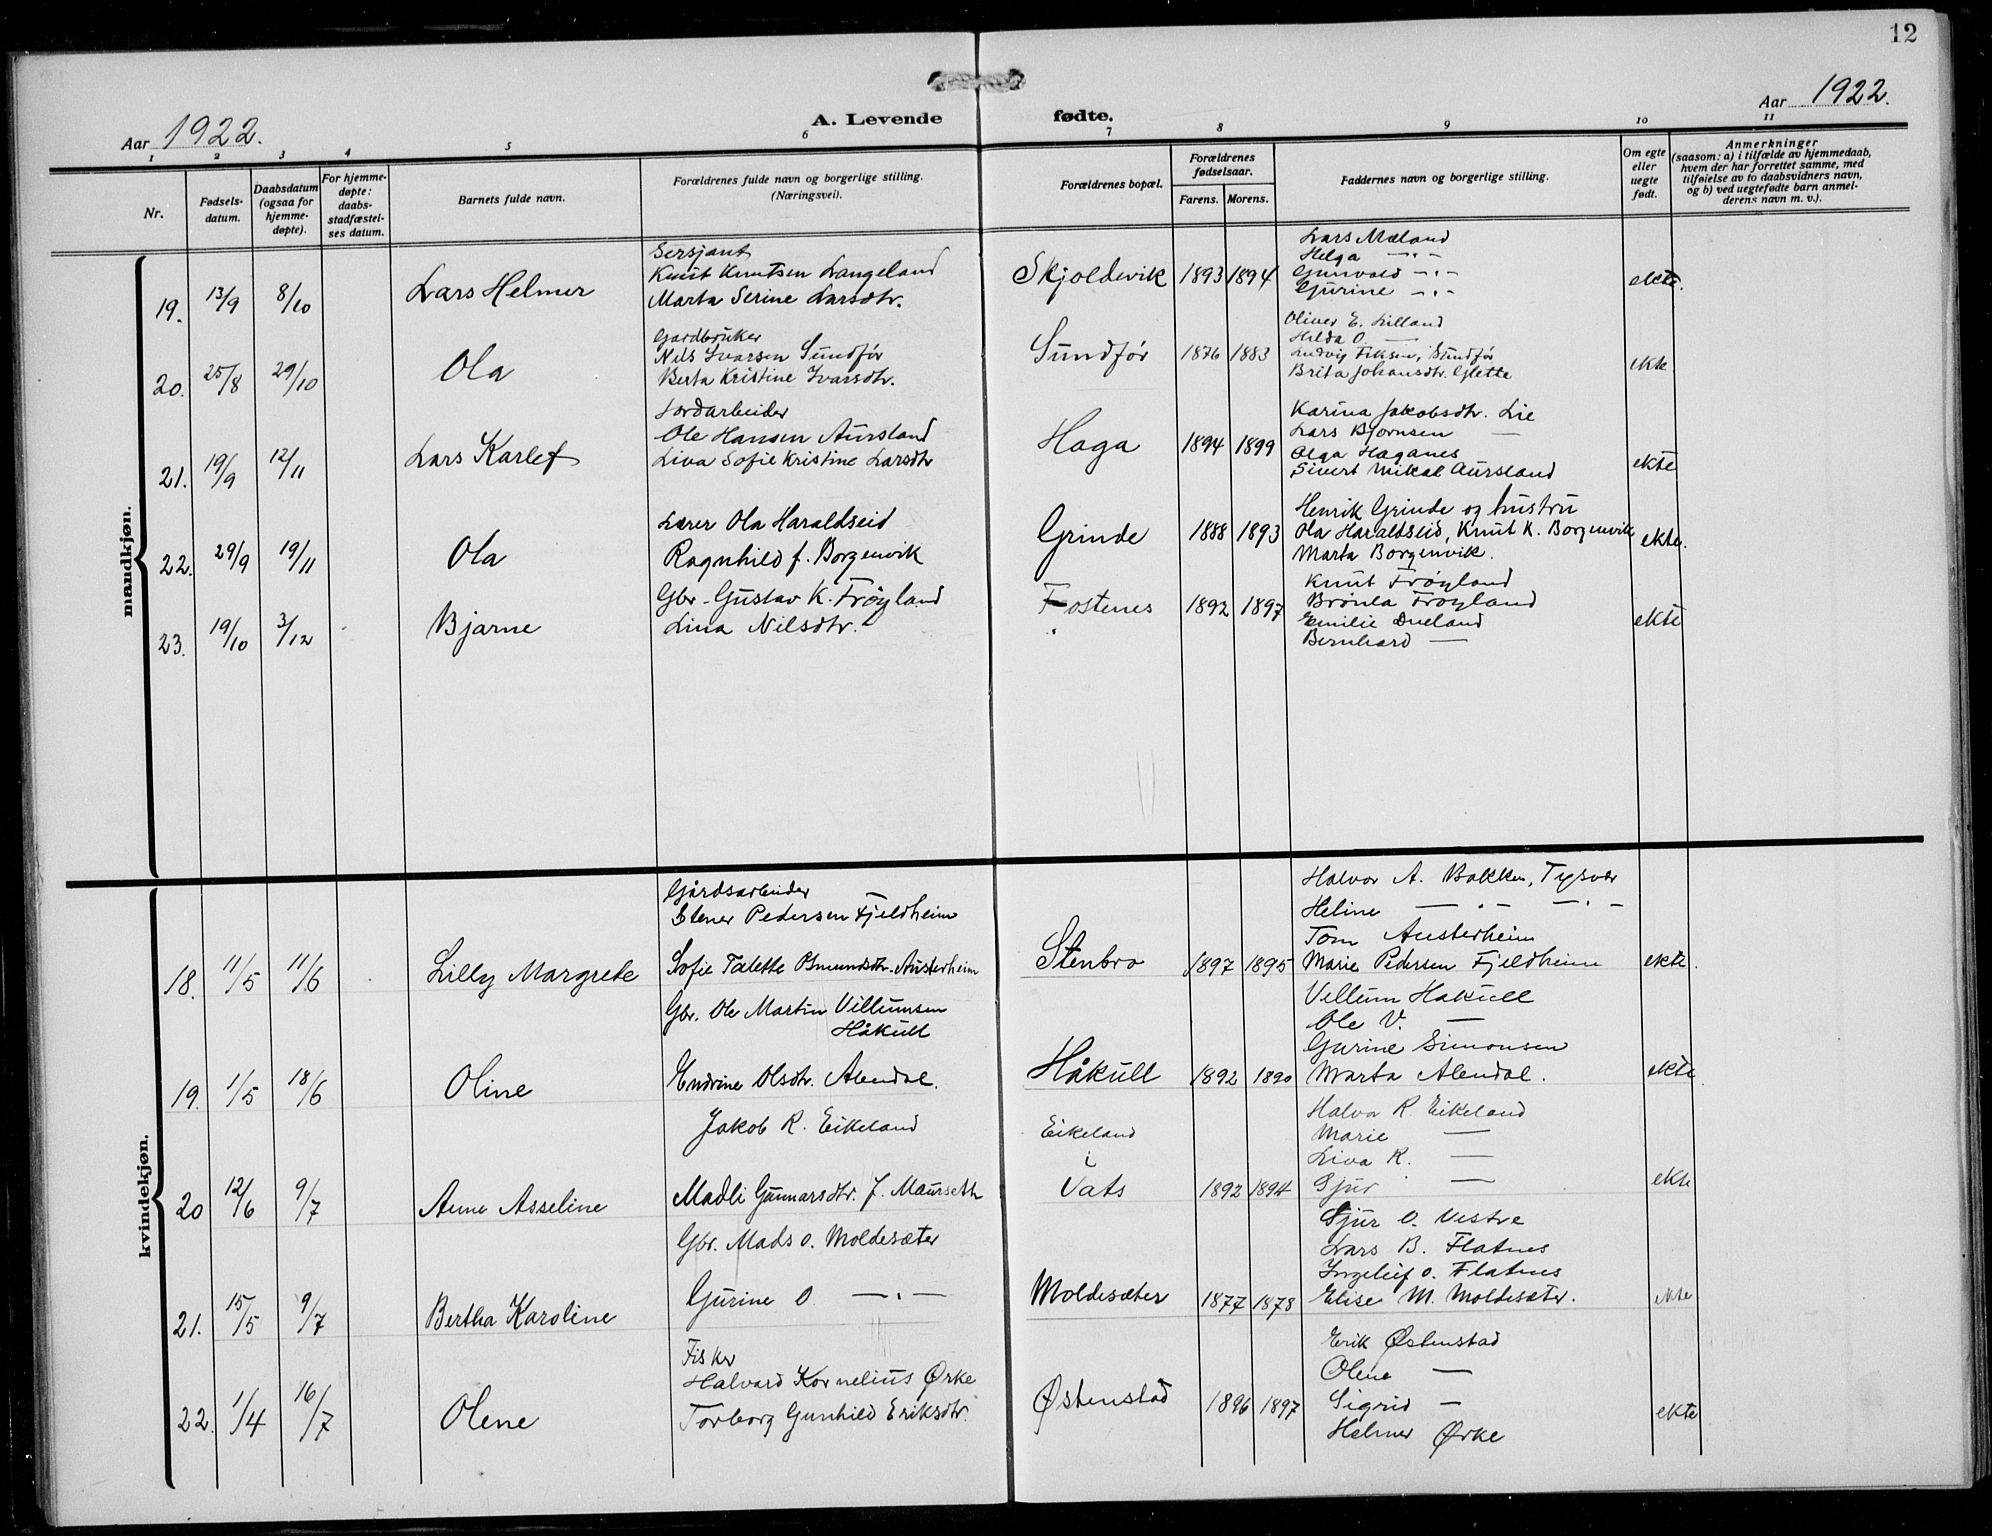 12
Aar 1922.
A. Levende fødte.
Aar 1922.
1 2 3 4 5 6 7 8 9 10 11
Nr.
Fødsels-
datum.
Daabsdatum
(ogsaa for
hjemme-
døpte).
For hjemme-
døpte:
daabs-
stadfæstel-
ses datum.
Barnets fulde navn.
Forældrenes fulde navn og borgerlige stilling.
(Næringsvei).
Forældrenes bopæl.
Forældrenes
fødselsaar.
Farens. Morens.
Faddernes navn og borgerlige stilling.
Om egte
eller
uegte
født.
Anmerkninger
(saasom: a) i tilfælde av hjemmedaab,
hvem der har forrettet samme, med
tilføielse av to daabsvidners navn,
og b) ved uegtefødte barn anmel-
derens navn m. v.).
mandkjøn.
19. 13/9 8/10 Lars Helmer
Sersjant
Knut Knutsen Langeland
Marta Serine Larsdtr.
Skjoldevik 1893 1894
Lars Mæland
Helga -"-
Gunvald -"-
Gurine -"-
ekte.
20. 25/8 29/10 Ola
Gardbruker
Nils Ivarsen Sundfør
Berta Kristine Ivarsdtr.
Sundfør 1876 1883
Oliver E. Lilland
Hilda O. —
Ludvig Eiksen, Sundfør
Brita Johansdtr. Glette
ekte
21. 19/9 12/11 Lars Karlef
Jordarbeider
Ole Hansen Aursland
Liva Sofie Kristine Larsdtr
Haga 1894 1899
Karina Jakobsdtr. Lie
Lars Bjørnsen —
Olga Haganes
Sivert Mikal Aursland
ekte
22. 29/9 19/11 Ola
Lærer Ola Haraldseid
Ragnhild f. Borgenvik
Grinde 1888 1893
Henrik Grinde og hustru
Ola Haraldseid, Knut K. Borgenvik
Marta Borgenvik.
ekte.
23. 19/10 3/12 Bjarne
Gbr. Gustav K. Frøyland
Lina Nilsdtr.
Fostenes 1892 1897
Knut Frøyland
Brønla Frøyland
Emilie Dueland
Bernhard —
ekte
kvindekjøn.
18. 11/5 11/6 Lilly Margrete
Gårdsarbeider
Stener Pedersen Fjeldheim
Sofie Talette Osmundsdtr. Austerheim
Stenbro 1897 1895
Halvor A. Bakken, Tysvær
Heline — " — — " —
Tom Austerheim
Marie Pedersen Fjeldheim
ekte.
19. 1/5 18/6 Oline
Gbr. Ole Martin Villumsen
Håkull
Endrine Olsdtr. Alendal.
Håkull 1892 1890
Villum Hakull
Ole V. —
Gurine Simonsen
Marta Alendal.
ekte.
20 12/6 9/7 Anna Asseline
Jakob R. Eikeland
Madli Gunnarsdtr. f. Maurseth
Eikeland
i
Vats 1892 1894
Halvor R. Eikeland
Marie —
Liva R. —
Gjur —
ekte
21. 15/5 9/7 Bertha Karoline
Gbr. Mads O. Moldesæter
Gurine O — " —
Moldesæter 1877 1878
Sjur O. Vestre
Lars B. Flatnes
Ingeleif O. Flatnes
Elise M. Moldesæter.
ekte
22. 1/4 16/7 Olene
Fisker
Halvard Kornelius Ørke
Torborg Gunhild Eriksdtr.
Østenstad 1896 1897
Erik Østenstad
Olena —
Sigrid —
Helmer Ørke
ekte